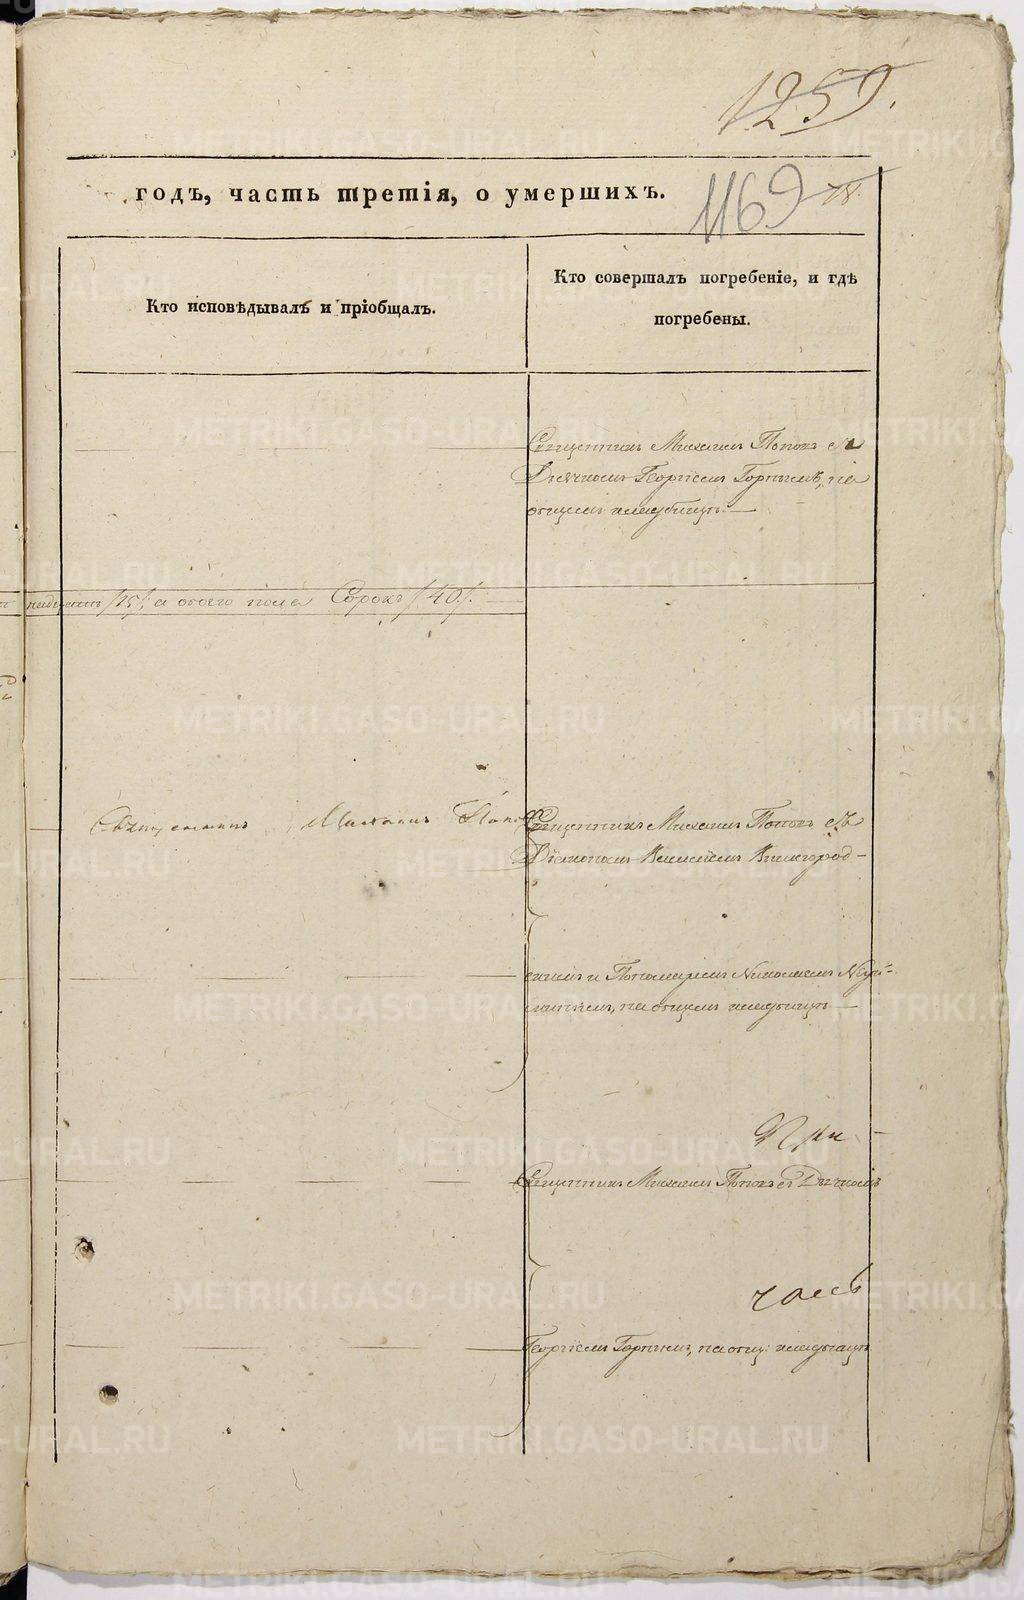 1259.
годъ, часть третія, о умершихъ.
1169
78.
Кто исповѣдывалъ и пріобщалъ.
Кто совершалъ погребеніе, и гдѣ
погребены.
Священникъ Михаилъ Поповъ съ
Дьячкомъ Георгіемъ Горнымъ, на
общемъ кладбищѣ.
/15/, а обоего пола Сорокъ /40/.
Священникъ Михаилъ Поповъ
Священникъ Михаилъ Поповъ съ
Діакономъ Василіемъ Вышегород-
скимъ и Пономаремъ Николаемъ
на общемъ кладбищѣ
При
Священникъ Михаилъ Поповъ съ Дьячкомъ
часъ
Георгіемъ Горнымъ, на общ: кладбищѣ
METRIKI.GASO-URAL.RU